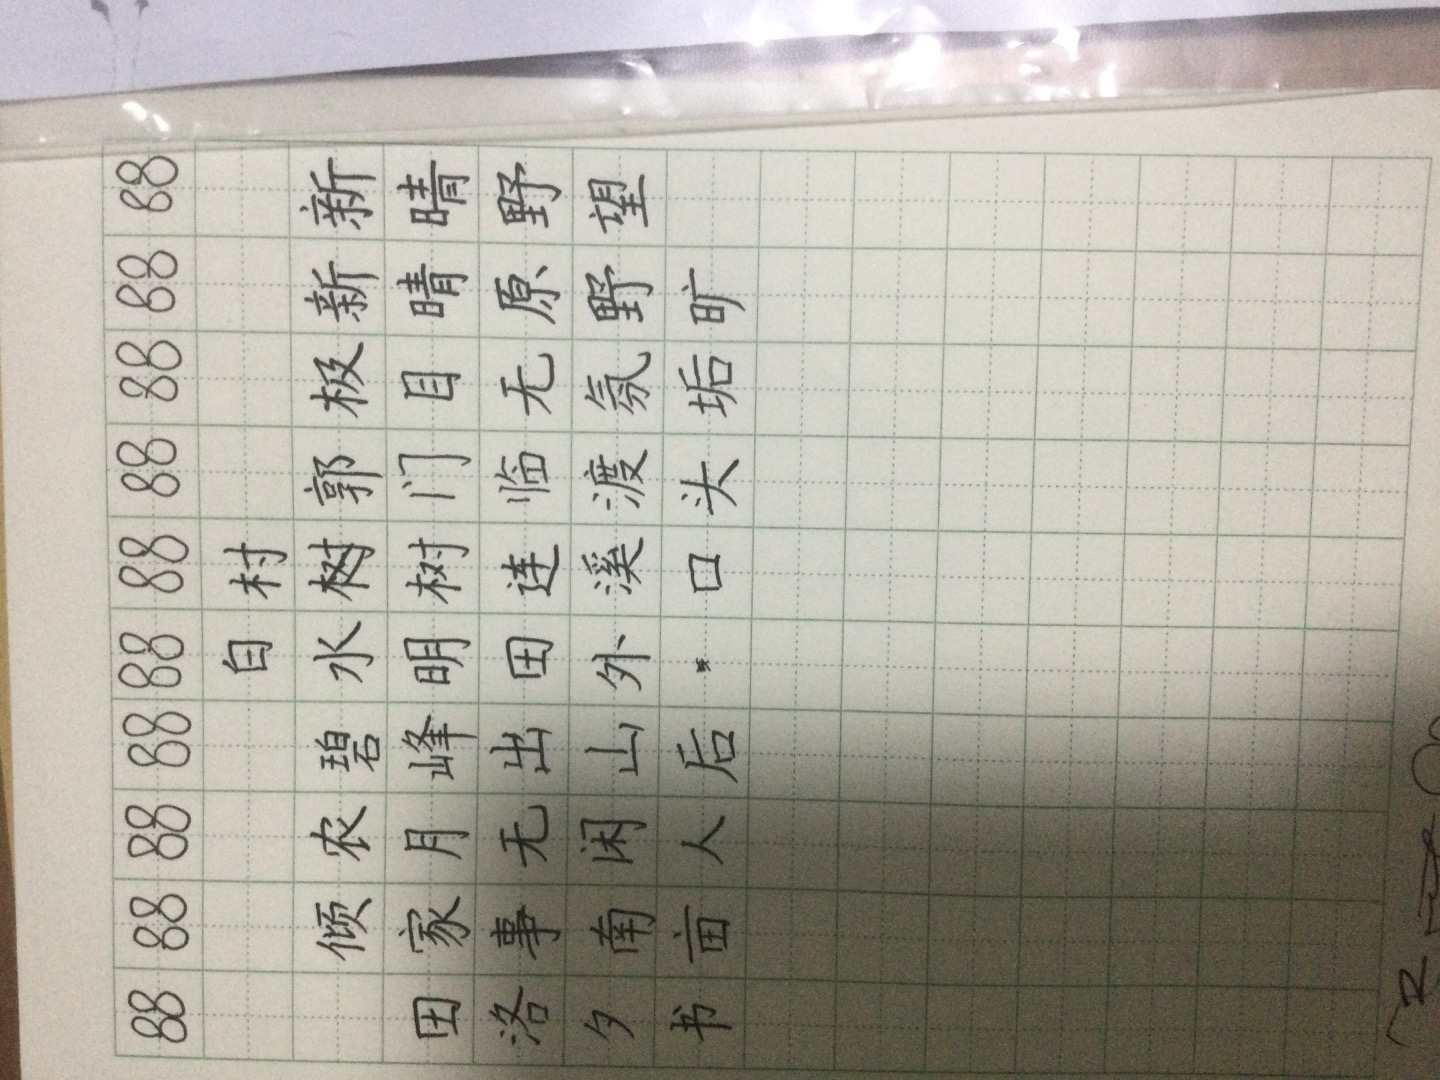 88 新晴野望
88 新晴原野旷
88 极目无氛垢
88 郭门临渡头
88 村树树连溪口
88 白水明田外
88 碧峰出山后
88 农月无闲人
88 倾家事南亩
88 田洛夕书